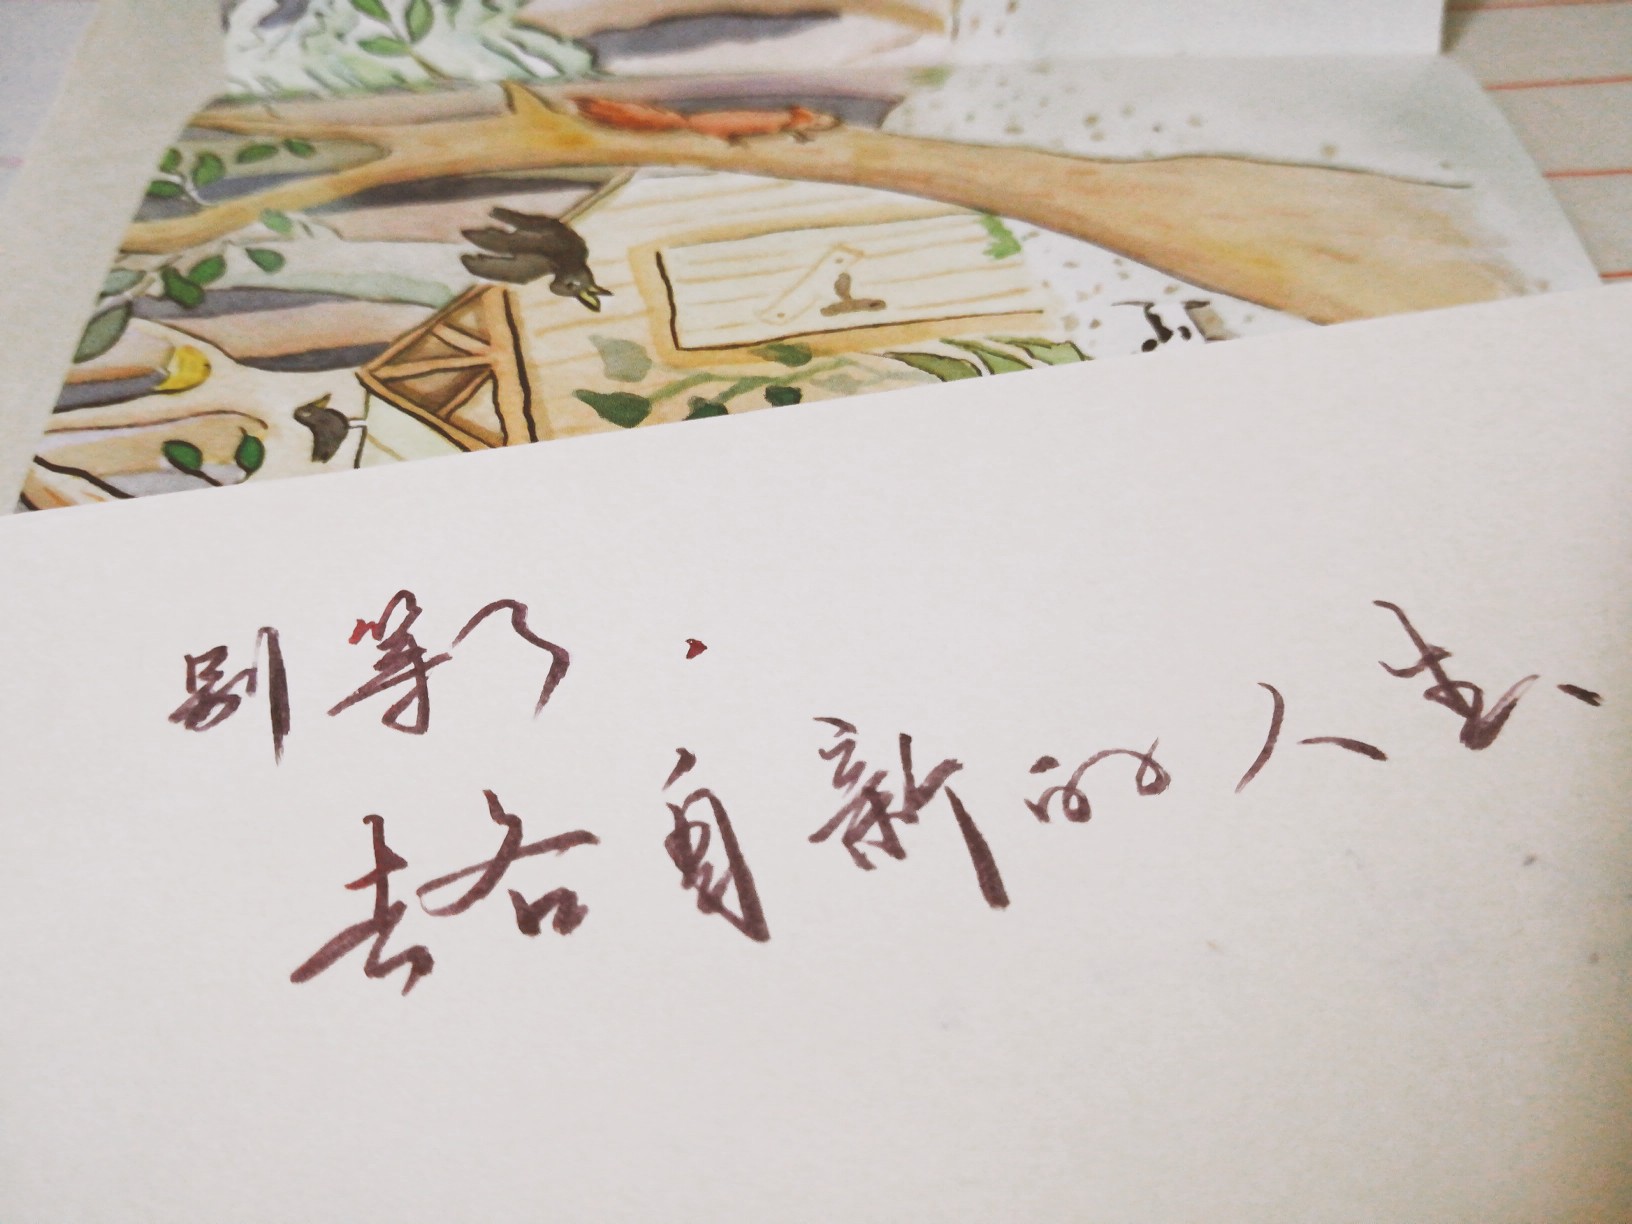 别等了.
去各自新的人生、